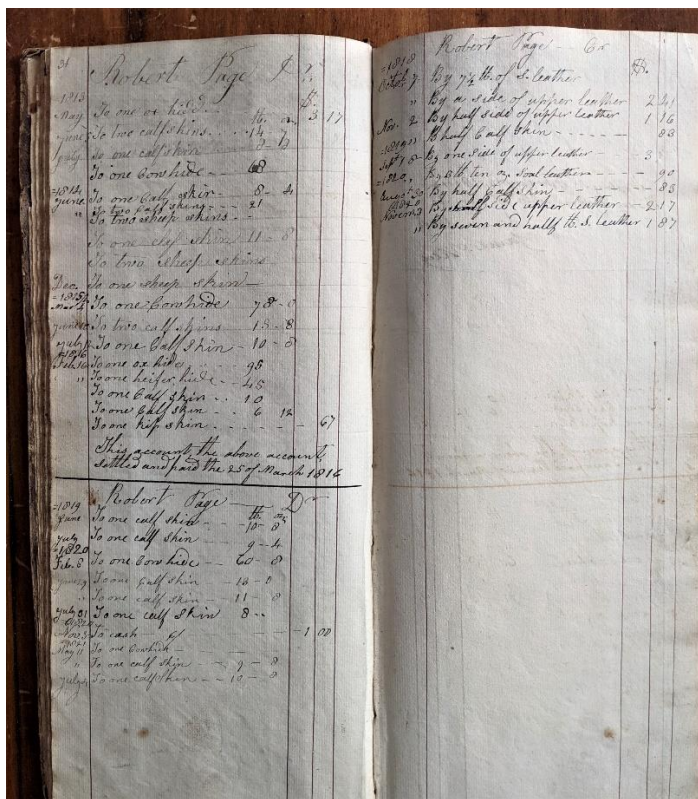 31 Robert Page D
1813 $.
May To one ox hide lb. oz 3 17
June To two calf skins - - 14 - 7
July To one calf skin
To one Cowhide 68
1814
June To one Calf skin - 8 - 4
" To two Calf skins - - 21
To two sheep skins - -
To one calf skin 11 - 8
To two sheep skins
Dec. To one sheep skin -
1815
Mar 4 To one Cowhide 78 - 0
June To two calf skins 18 - 8
July To one Calf skin - 10 - 8
1816
Feb. 16 To one ox hide 95
" To one heifer hide - - 45
To one Calf skin - 10
To one Calf skin - 6 12
To one kip skin - - - - - - 67
This account, the above account,
settled and paid the 25 of March 1816
Robert Page Dr
1819
June To one calf skin - lb. oz 10 - 8
July To one calf skin 9 - 4
1820
Feb. 8 To one Cowhide - 60 - 8
June To one Calf skin - 13 - 0
" To one calf skin - - 11 - 8
July 31 To one calf skin 8 - -
Nov. 3 To cash - 1 00
1821
May 11 To one Cowhide -
" To one calf skin - - 9 - 8
July To one calf skin - - 10 - 8
Robert Page - Cr
1818 $.
Octob. 7 By 7 1/2 lb. of S. leather
" By a side of upper leather - 2 41
Nov. 2 By half side of upper leather 1 16
" By half Calf skin - - - - - 83
1819
Sept. 8 By one side of upper leather - 3
1820 By lb ten oz Soal leather - - 90
August 30 By half Calf skin - - - - 83
Novem. By side upper leather - 2 17
" By seven and half lb. S. leather 1 87